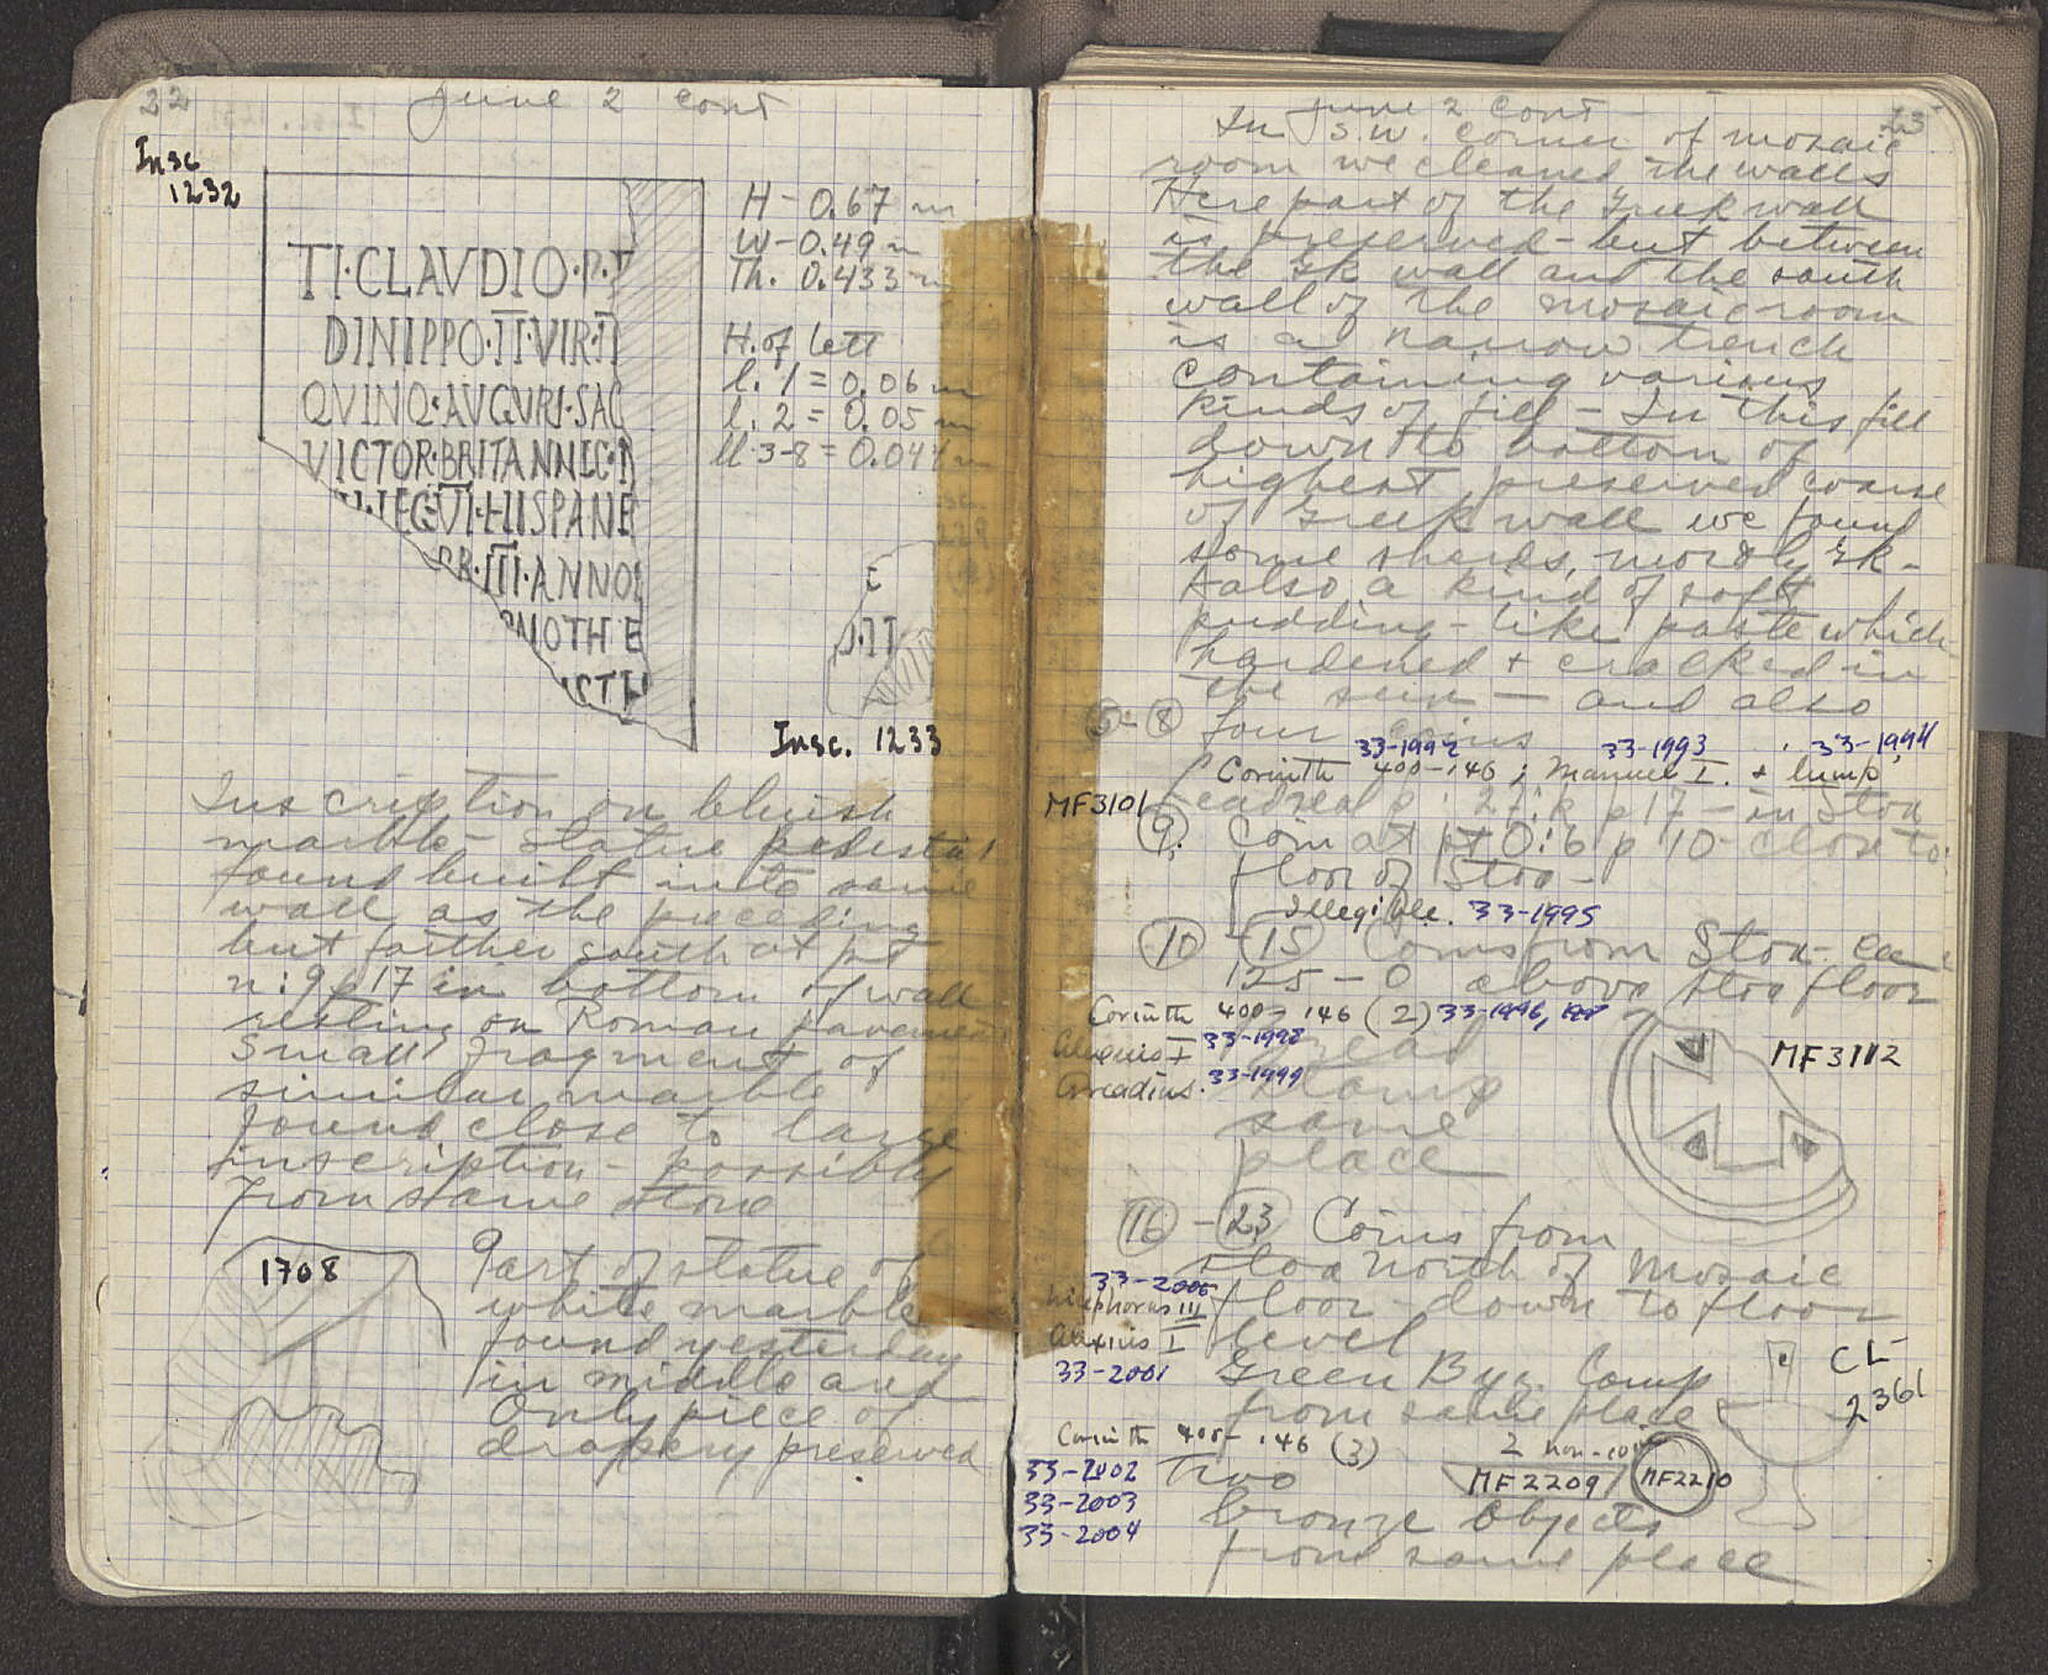 22
June 2 cont
Insc
1232
TI·CLAVDIO·P·F
DINIPPO·II·VIR·II
QVINQ·AVGVRI·SAC
VICTOR·BRITANNIC·
LEG·VI·HISPANE
R·III·ANNO
MOTHE
CTI
H - 0.67 m
W - 0.49 m
Th. 0.433 m
H. of lett
l. 1 = 0.06 m
l. 2 = 0.05 m
ll. 3-8 = 0.044 m
E
O·IT
Insc. 1233
Inscription on bluish
marble - statue pedestal
found built into same
wall as the preceding
but farther south at pt
n:9 p17 in bottom of wall
resting on Roman pavement
small fragment of
similar marble
found close to large
inscription - possibly
from same stone
1708
Part of statue of
white marble
found yesterday
in middle area
Only piece of
drapery preserved
23
June 2 cont
In S.W. corner of mosaic
room we cleaned the walls
Here part of the Greek wall
is preserved - but between
the Gk wall and the south
wall of the mosaic room
is a narrow trench
containing various
kinds of fill - In this fill
down to bottom of
highest preserved course
of Greek wall we found
some sherds, mostly Gk -
+ also a kind of soft
pudding-like paste which
hardened + cracked in
the sun - and also
5 - 8 four coins
33-1992 33-1993 33-1994
Corinth 400-146; Manuel I. + lump
MF3101 Lead seal p:27:k p17 - in Stoa
9. Coin at pt O:6 p 10 close to
floor of Stoa -
Illegible. 33-1995
10 - 15 Coins from Stoa -
125 - 0 above stoa floor
Corinth 400-146 (2) 33-1996, 1997
Alexius I 33-1998
Arcadius. 33-1999
Bread
stamp
same
place
MF3112
16 - 23 Coins from
stoa north of Mosaic
33-2000
Nicephorus III floor - down to floor
Alexius I level
33-2001
Green Byz. Lamp
from same place
CL-
2361
Corinth 400-146 (3)
2 non-coin
33-2002
33-2003
33-2004
MF2209 MF2210
Two
bronze objects
from same place